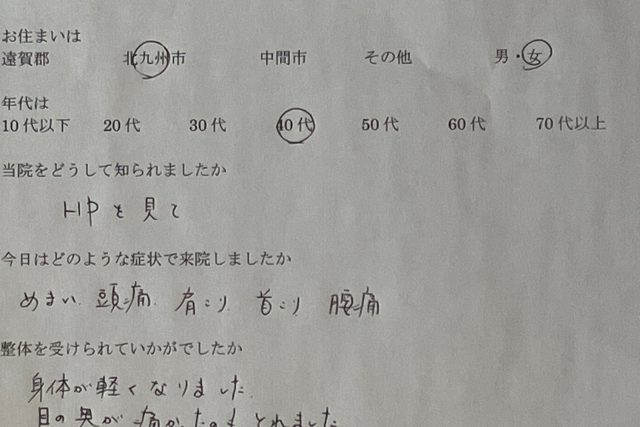 お住まいは
遠賀郡 北九州市 中間市 その他 男・女
年代は
10代以下 20代 30代 40代 50代 60代 70代以上
当院をどうして知られましたか
HPを見て
今日はどのような症状で来院しましたか
めまい、頭痛、肩こり 首こり 腰痛
整体を受けられていかがでしたか
身体が軽くなりました。
目の奥が痛かったのもとれました